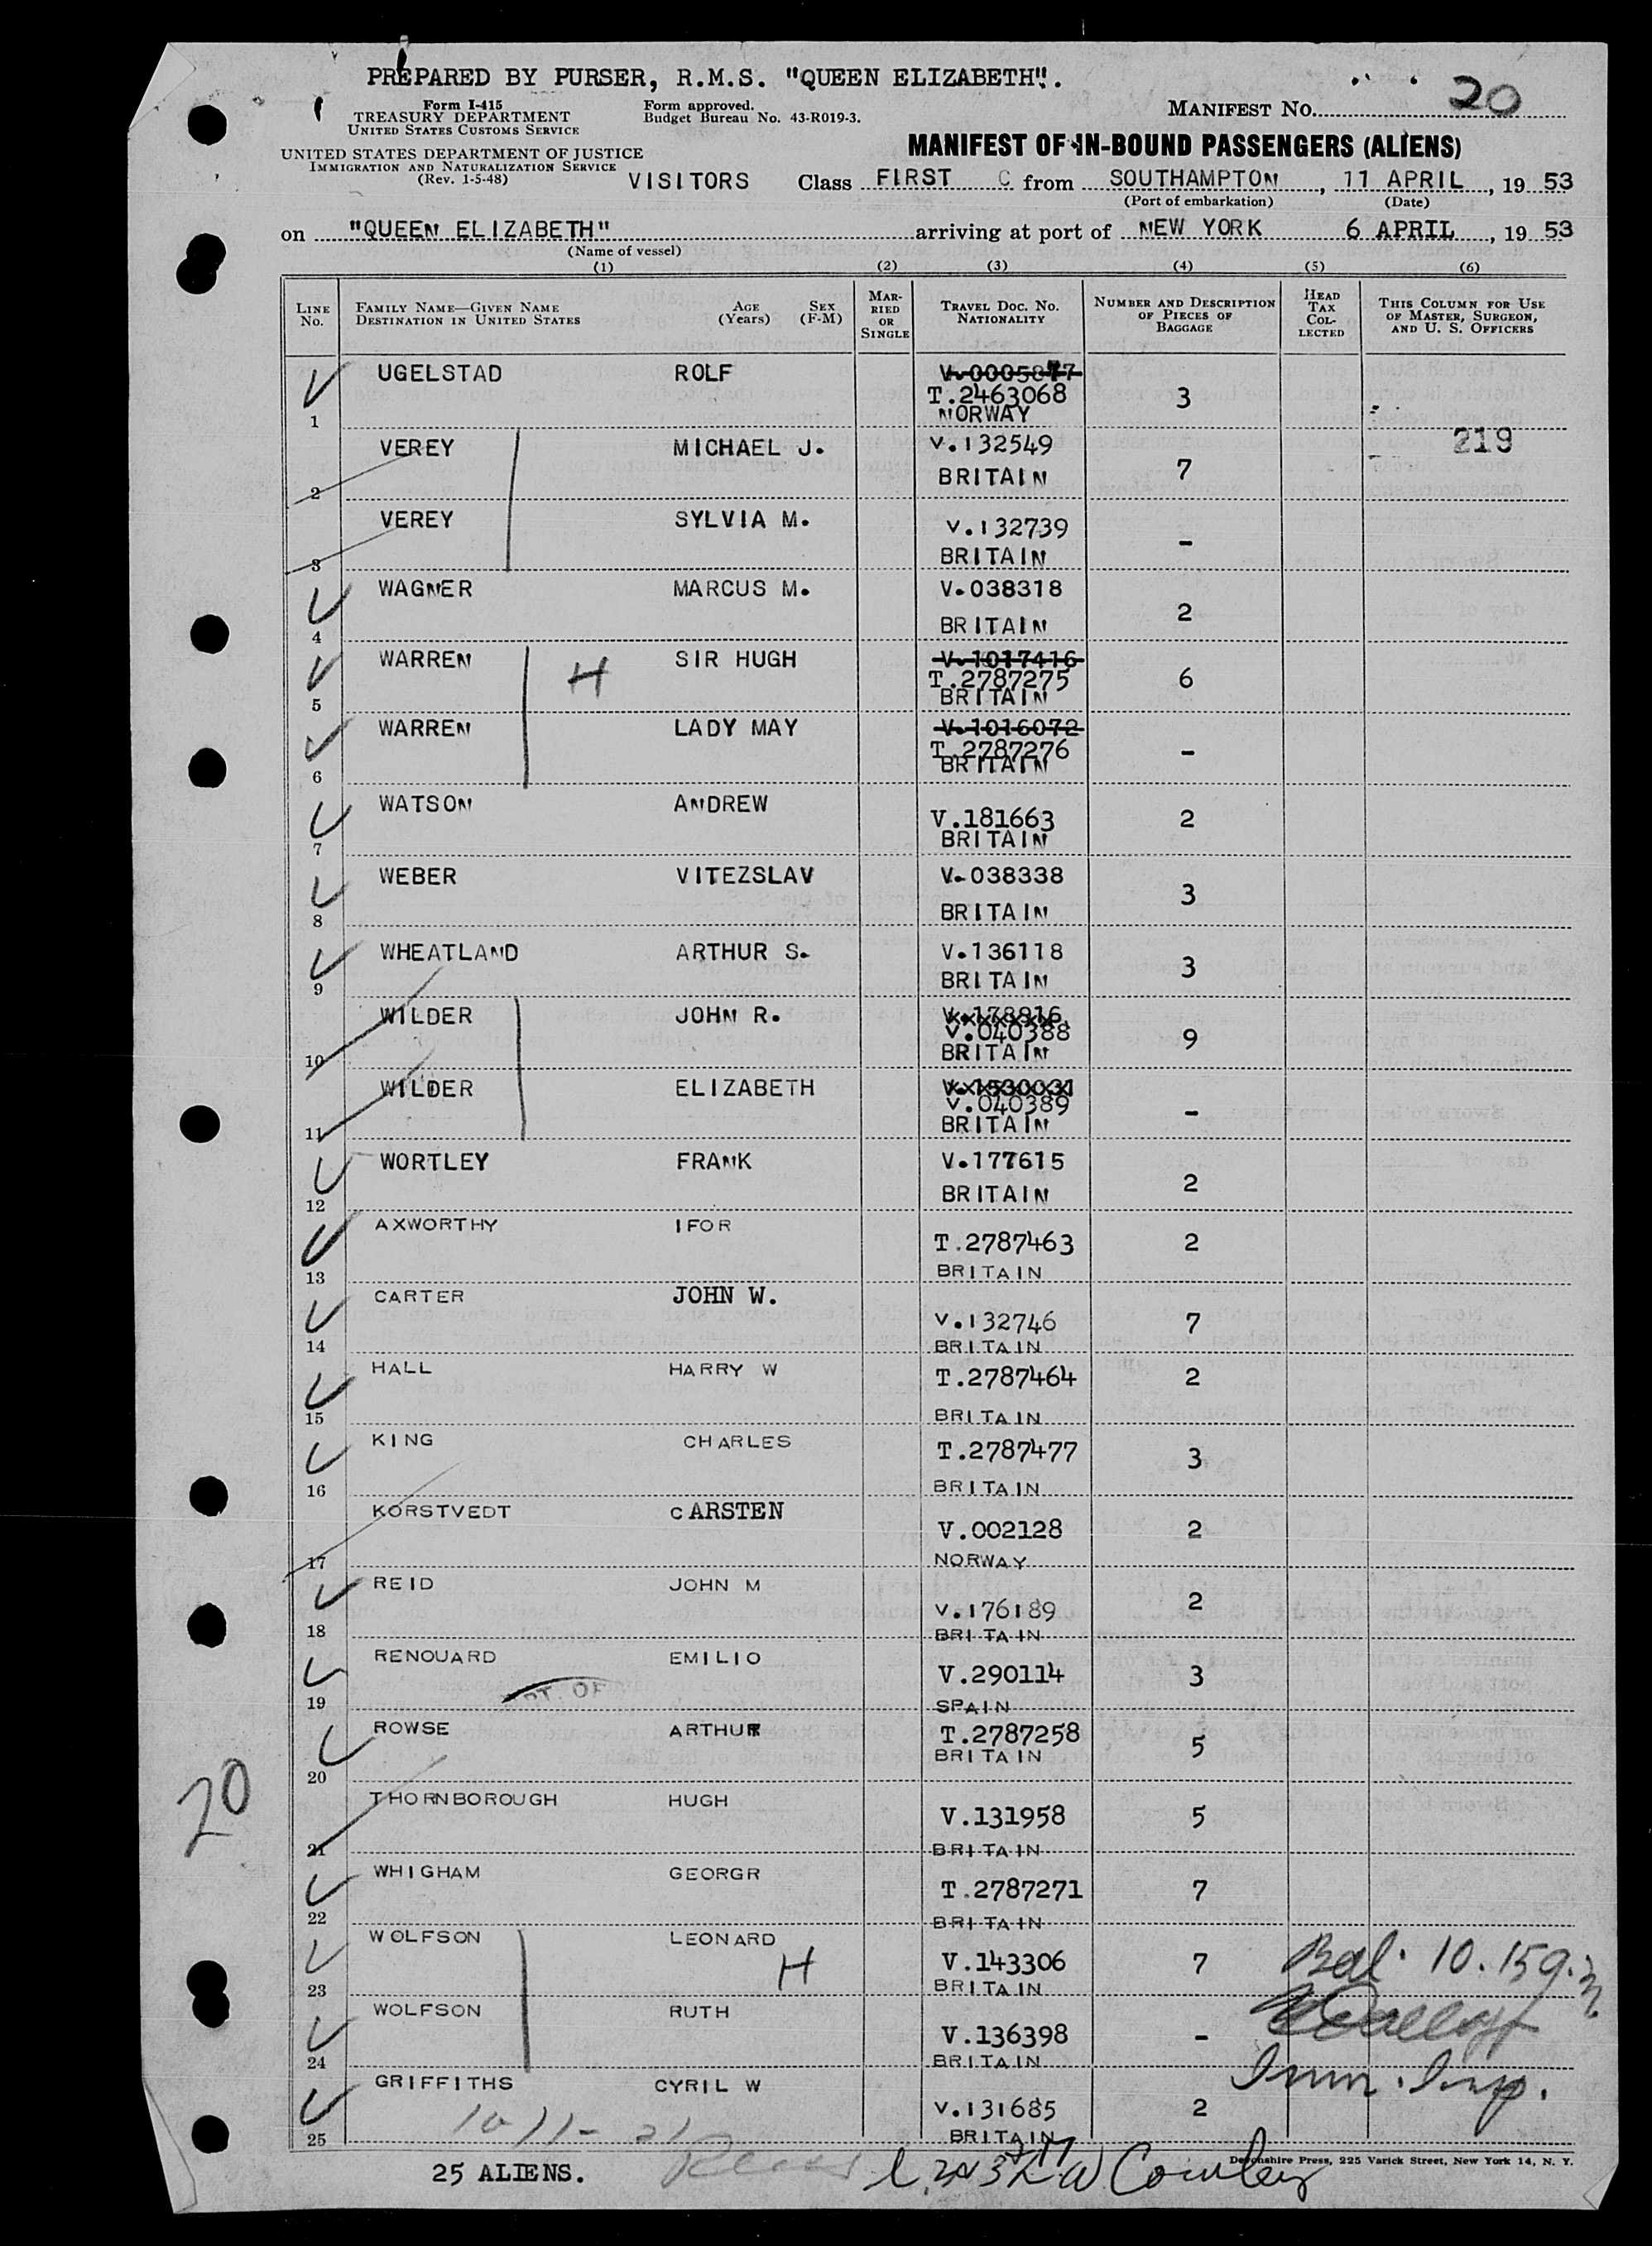 PREPARED BY PURSER, R.M.S. "QUEEN ELIZABETH".
Form I-415
TREASURY DEPARTMENT
UNITED STATES CUSTOMS SERVICE
Form approved.
Budget Bureau No. 43-R019-3.
MANIFEST No. 20
UNITED STATES DEPARTMENT OF JUSTICE
IMMIGRATION AND NATURALIZATION SERVICE
(Rev. 1-5-48)
MANIFEST OF IN-BOUND PASSENGERS (ALIENS)
VISITORS Class FIRST C from SOUTHAMPTON, 11 APRIL, 19 53
(Port of embarkation) (Date)
on "QUEEN ELIZABETH" arriving at port of NEW YORK 6 APRIL, 19 53
(Name of vessel)
(1) (2) (3) (4) (5) (6)
LINE No. FAMILY NAME—GIVEN NAME DESTINATION IN UNITED STATES AGE (Years) SEX (F-M) MARRIED OR SINGLE TRAVEL DOC. NO. NATIONALITY NUMBER AND DESCRIPTION OF PIECES OF BAGGAGE HEAD TAX COLLECTED THIS COLUMN FOR USE OF MASTER, SURGEON, AND U. S. OFFICERS
1 UGELSTAD ROLF T.2463068 NORWAY 3
219
2 VEREY MICHAEL J. V.132549 BRITAIN 7
3 VEREY SYLVIA M. V.132739 BRITAIN -
4 WAGNER MARCUS M. V.038318 BRITAIN 2
5 WARREN H SIR HUGH V.1017416 T.2787275 BRITAIN 6
6 WARREN LADY MAY V.1016072 T.2787276 BRITAIN -
7 WATSON ANDREW V.181663 BRITAIN 2
8 WEBER VITEZSLAV V.038338 BRITAIN 3
9 WHEATLAND ARTHUR S. V.136118 BRITAIN 3
10 WILDER JOHN R. V.040388 BRITAIN 9
11 WILDER ELIZABETH V.040389 BRITAIN -
12 WORTLEY FRANK V.177615 BRITAIN 2
13 AXWORTHY IFOR T.2787463 BRITAIN 2
14 CARTER JOHN W. V.132746 BRITAIN 7
15 HALL HARRY W T.2787464 BRITAIN 2
16 KING CHARLES T.2787477 BRITAIN 3
17 KORSTVEDT CARSTEN V.002128 NORWAY 2
18 REID JOHN M V.176189 BRITAIN 2
19 RENOUARD EMILIO V.290114 SPAIN 3
20 ROWSE ARTHUR T.2787258 BRITAIN 5
20
21 THORNBOROUGH HUGH V.131958 BRITAIN 5
22 WHIGHAM GEORGR T.2787271 BRITAIN 7
23 WOLFSON LEONARD H V.143306 BRITAIN 7
24 WOLFSON RUTH V.136398 BRITAIN -
Imm. Insp.
25 GRIFFITHS CYRIL W V.131685 BRITAIN 2
25 ALIENS.
Devonshire Press, 225 Varick Street, New York 14, N. Y.